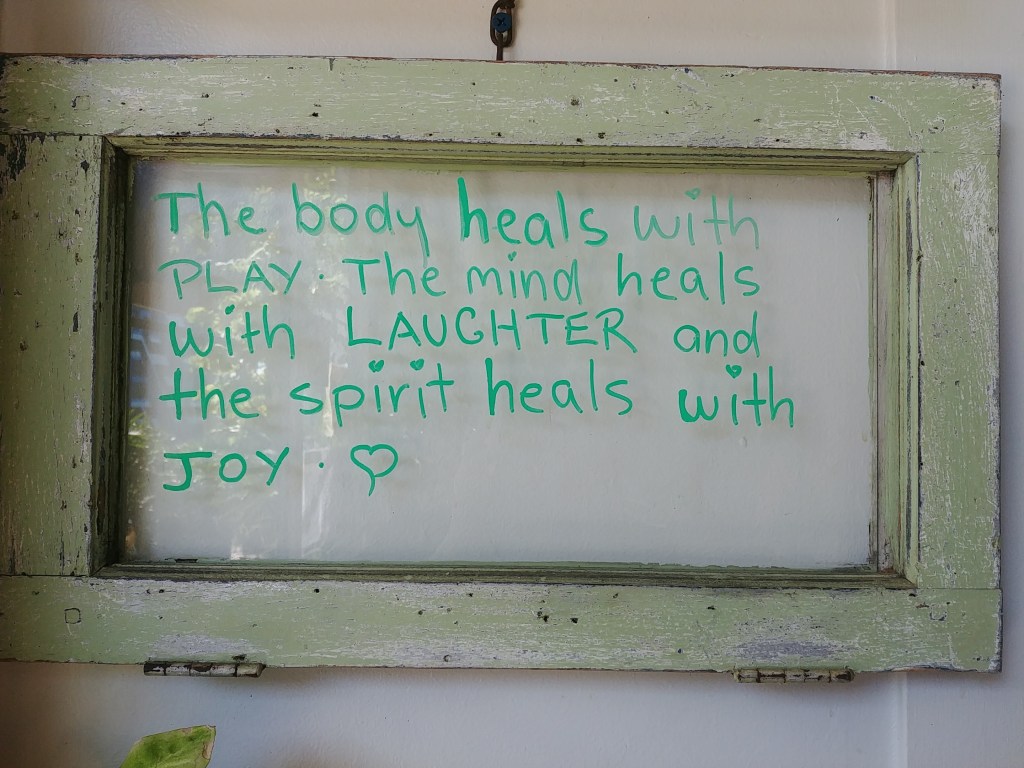 The body heals with
PLAY. The mind heals
with LAUGHTER and
the spirit heals with
JOY. ♡